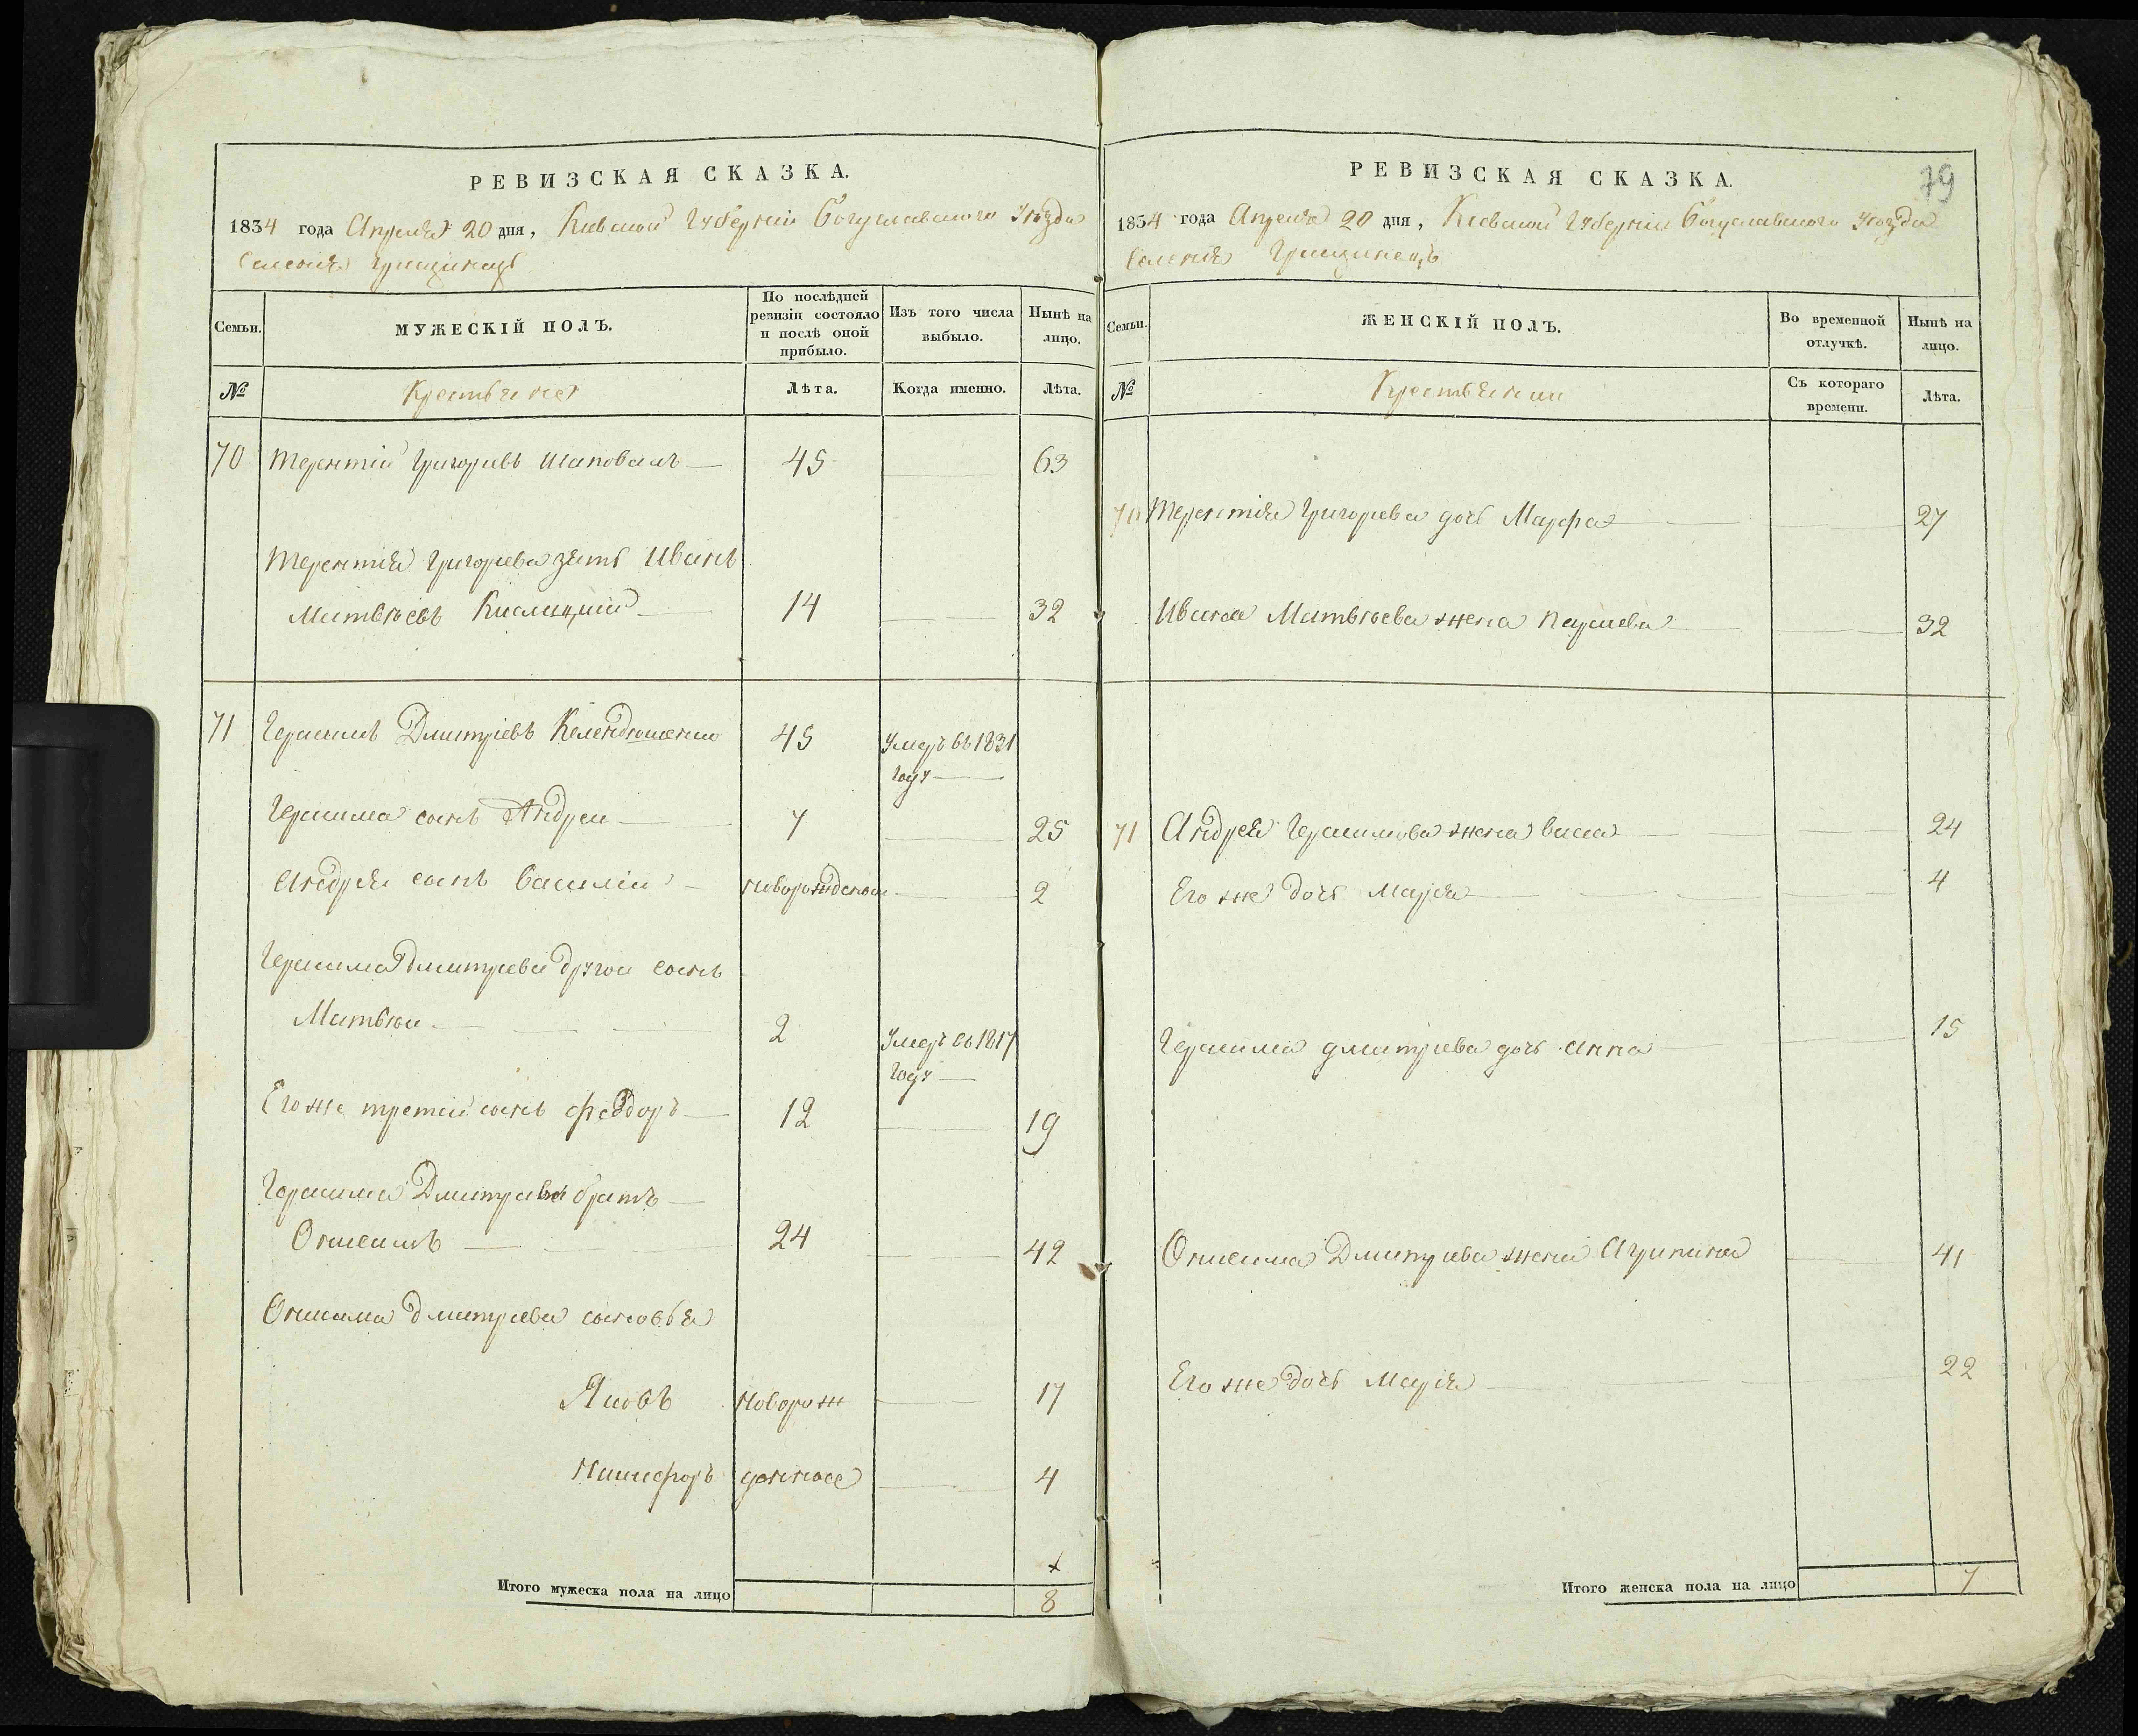 РЕВИЗСКАЯ СКАЗКА.
1834 года Апреля 20 дня, Киевской Губерніи Богуславскаго Уѣзда
Селенія Грищинецъ
Семьи.
МУЖЕСКІЙ ПОЛЪ.
По послѣдней ревизіи состояло и послѣ оной прибыло.
Изъ того числа выбыло.
Нынѣ на лицо.
№
Крестьяне
Лѣта.
Когда именно.
Лѣта.
70 Терентій Григорьевъ Шаповалъ 45 63
Терентія Григорьева зять Иванъ
Матвѣевъ 14 32
71 Герасимъ Дмитріевъ 45 Умеръ въ 1831
году
Герасима сынъ Андрей 7 25
Андрея сынъ Василій новорожденной 2
Герасима Дмитріева другой сынъ
Матвѣй 2 Умеръ въ 1817
году
Его же третій сынъ Феодоръ 12 19
Герасима Дмитріева братъ
Онисимъ 24 42
Онисима Дмитріева сыновья
Яковъ новорож 17
Никифоръ денные 4
+
Итого мужеска пола на лицо 8
РЕВИЗСКАЯ СКАЗКА.
79
1834 года Апреля 20 дня, Киевской Губерніи Богуславскаго Уѣзда
Селенія Грищинецъ
Семьи.
ЖЕНСКІЙ ПОЛЪ.
Во временной отлучкѣ.
Нынѣ на лицо.
№
Крестьянки
Съ котораго времени.
Лѣта.
70 Терентія Григорьева дочь Марфа 27
Ивана Матвѣева жена 32
71 Андрея Герасимова жена Васса 24
Его же дочь Марія 4
Герасима Дмитріева дочь Анна 15
Онисима Дмитріева жена Агрипина 41
Его же дочь Марія 22
Итого женска пола на лицо 7